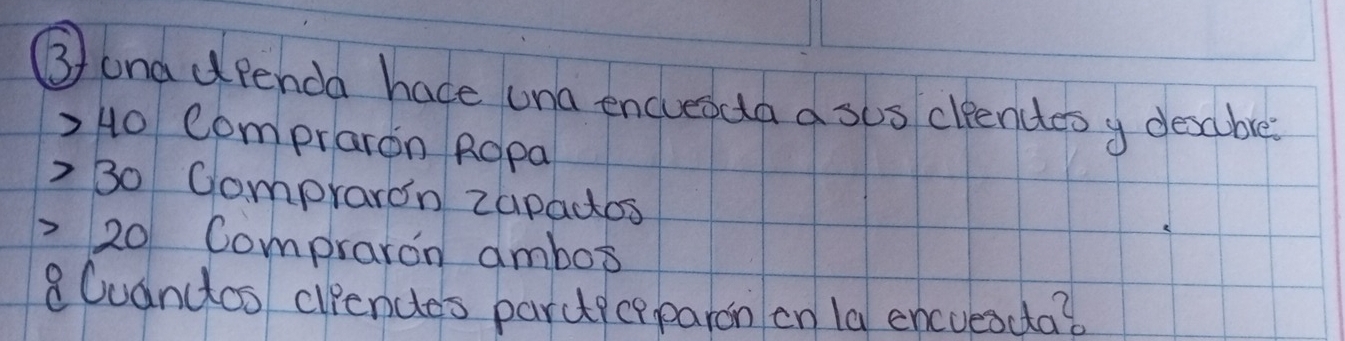 3) una tienda hace una encuesta a sus clientes y descubre:
> 40 Comprarón Ropa
> 30 Comprarón zapatos
> 20 Comprarón ambos
¿Cuantos clientes participarón en la encuesta?